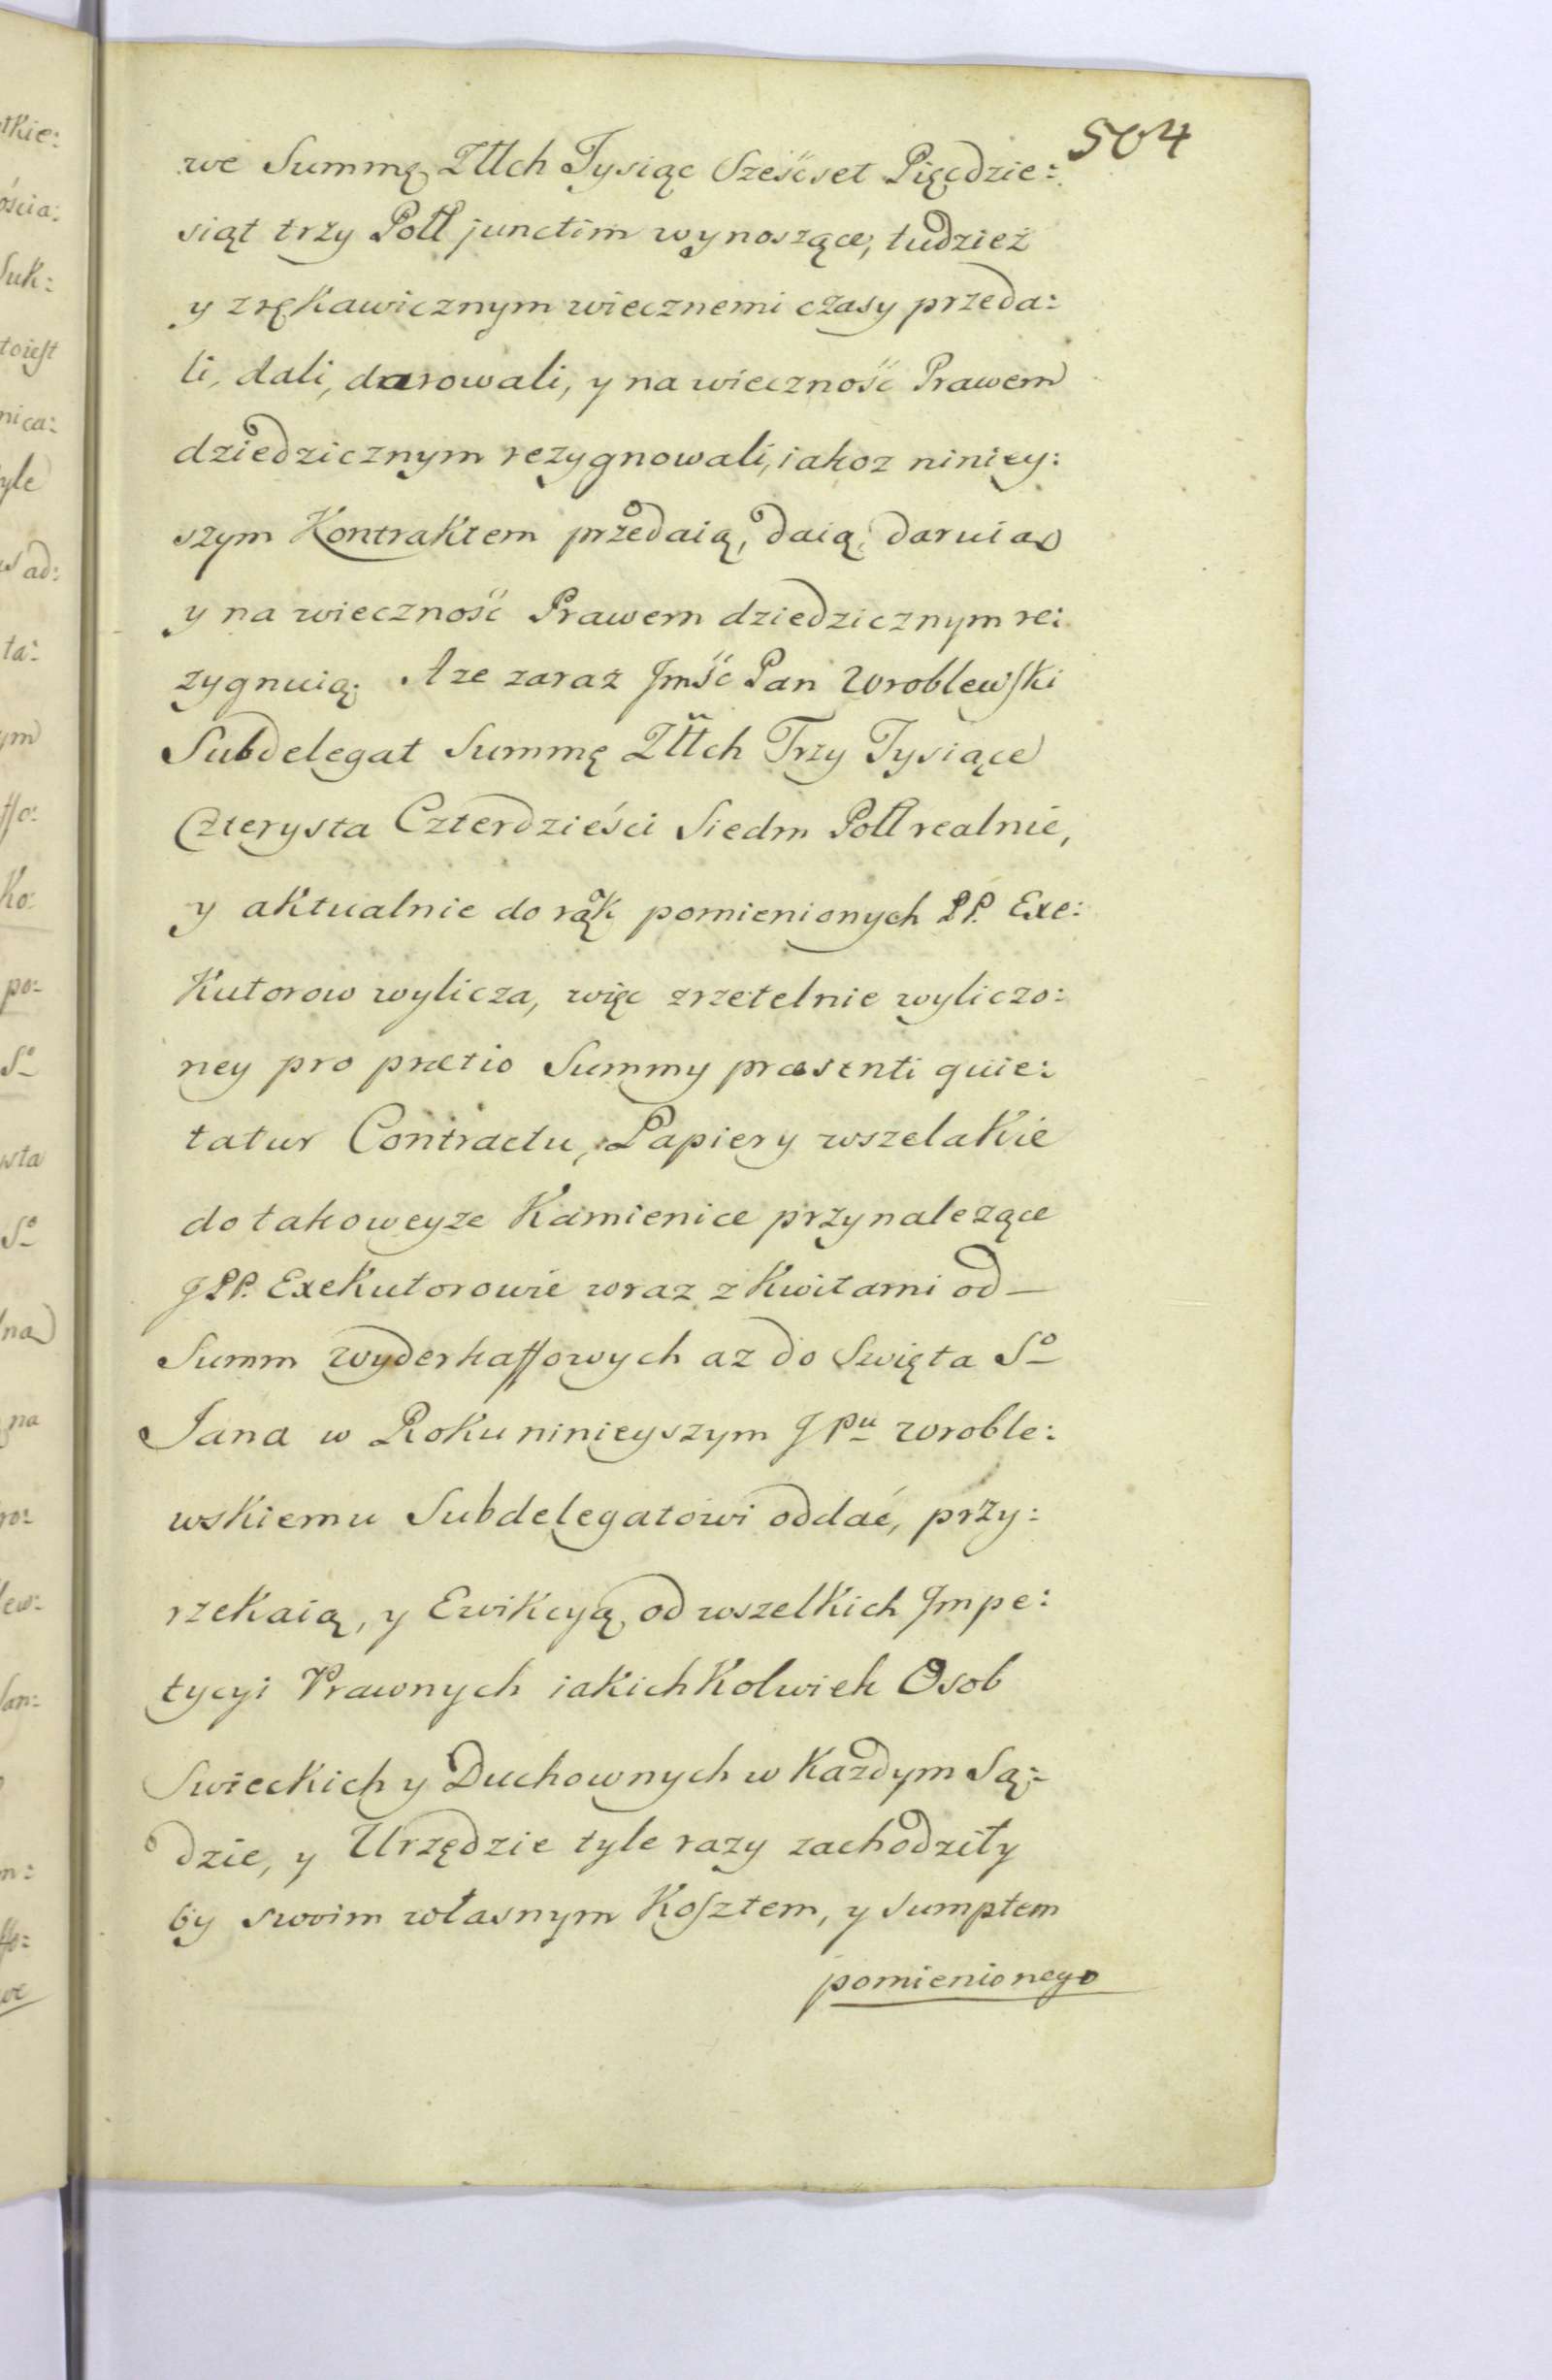 504
we Summę Złłch Tysiąc Sześćset Pięcdzie:
siąt trzy Poll junctim wynoszące, tudzież
y zrękawicznym wiecznemi czasy przeda:
li, dali, darowali, y na wieczność Prawem
dziedzicznym rezygnowali, iakoz niniey:
szym Kontraktem przedaią, daią, daruia
y na wieczność Prawem dziedzicznym re:
zygnuią. A ze zaraz Jmść Pan Wroblewski
Subdelegat Summę Złłch Trzy Tysiące
Czterysta Czterdzieści Siedm Poll realnie,
y aktualnie do rąk pomienionych PP. Exe:
Kutorow wylicza, więc zrzetelnie wyliczo:
ney pro prætio Summy præsenti quie:
tatur Contractu, Papiery wszelakie
do takoweyze Kamienice przynalezące
JPP. Exekutorowie wraz z Kwitami od
Summ wyderkaffowych az do Swięta So
Jana w Roku ninieyszym JPu Wroble:
wskiemu Subdelegatowi oddać, przy:
rzekaią, y Ewikcyą od wszelkich Jmpe:
tycyi Prawnych iakichkolwiek Osob
Swieckich y Duchownych w Każdym Są:
dzie, y Urzędzie tyle razy zachodziły
by swoim własnym Kosztem, y Sumptem
pomienionego
tkie:
ościa:
Suk:
toiest
nica:
yle
ad:
ta:
ym
ffo:
Ko:
po:
So
wta
So
na
na
ro:
lew: